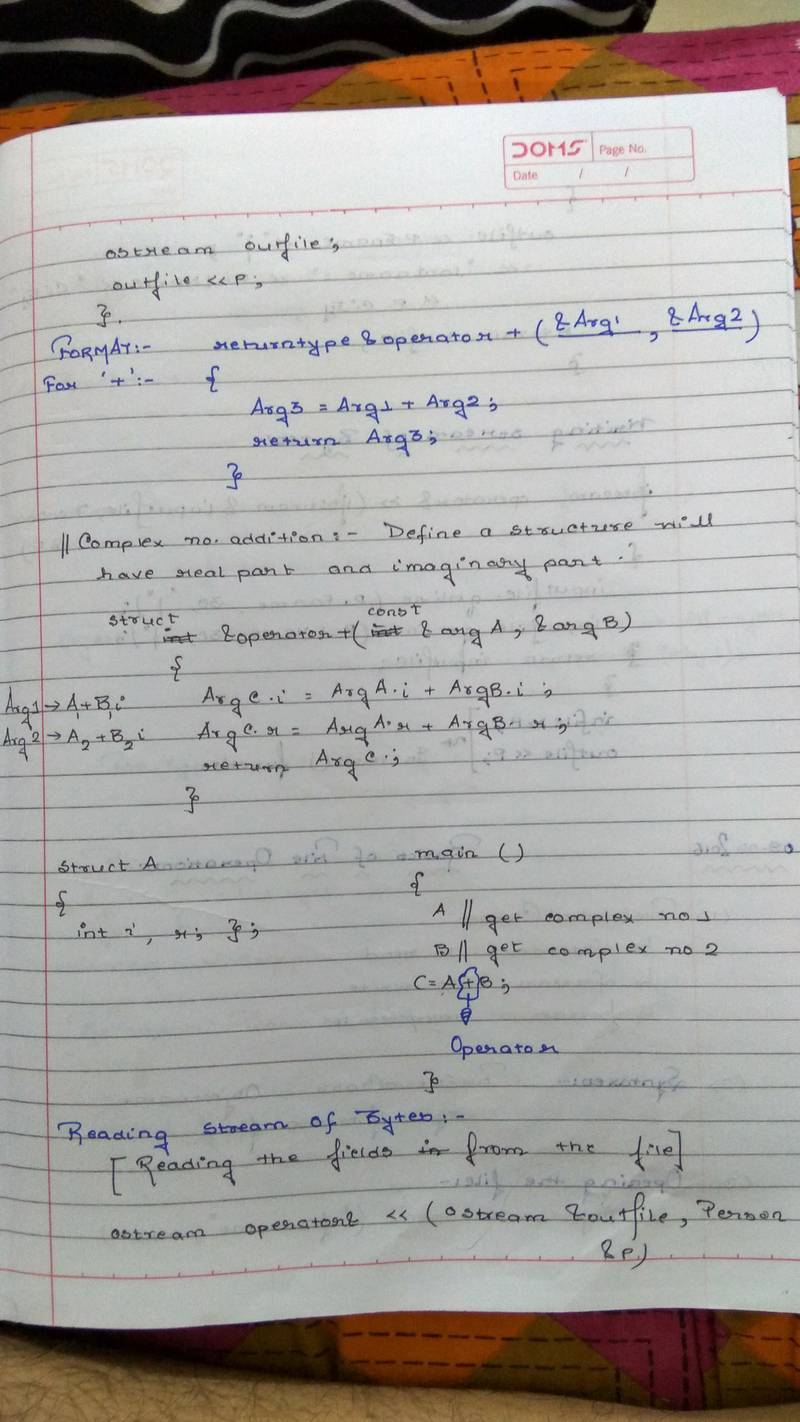 DOMS Page No.
Date / /
ostream outfile;
outfile <<P;
}.
FORMAT:- returntype &operator + (&Arg1, &Arg2)
For '+':- {
Arg3 = Arg1 + Arg2;
return Arg3;
}
|| Complex no. addition:- Define a structure will
have real part and imaginary part.
struct const
int &operator+(int &argA, &argB)
{
Arg1→A1+B1i ArgC.i = ArgA.i + ArgB.i;
Arg2→A2+B2i ArgC.r = ArgA.r + ArgB.r;
return ArgC.;
}
struct A main ()
{ {
int i, r; }; A || get complex no 1
B || get complex no 2
C=A+B;
Operator
}
Reading stream of Bytes:-
[Reading the fields in from the file]
ostream operator& << (ostream &outfile, Person
&P)